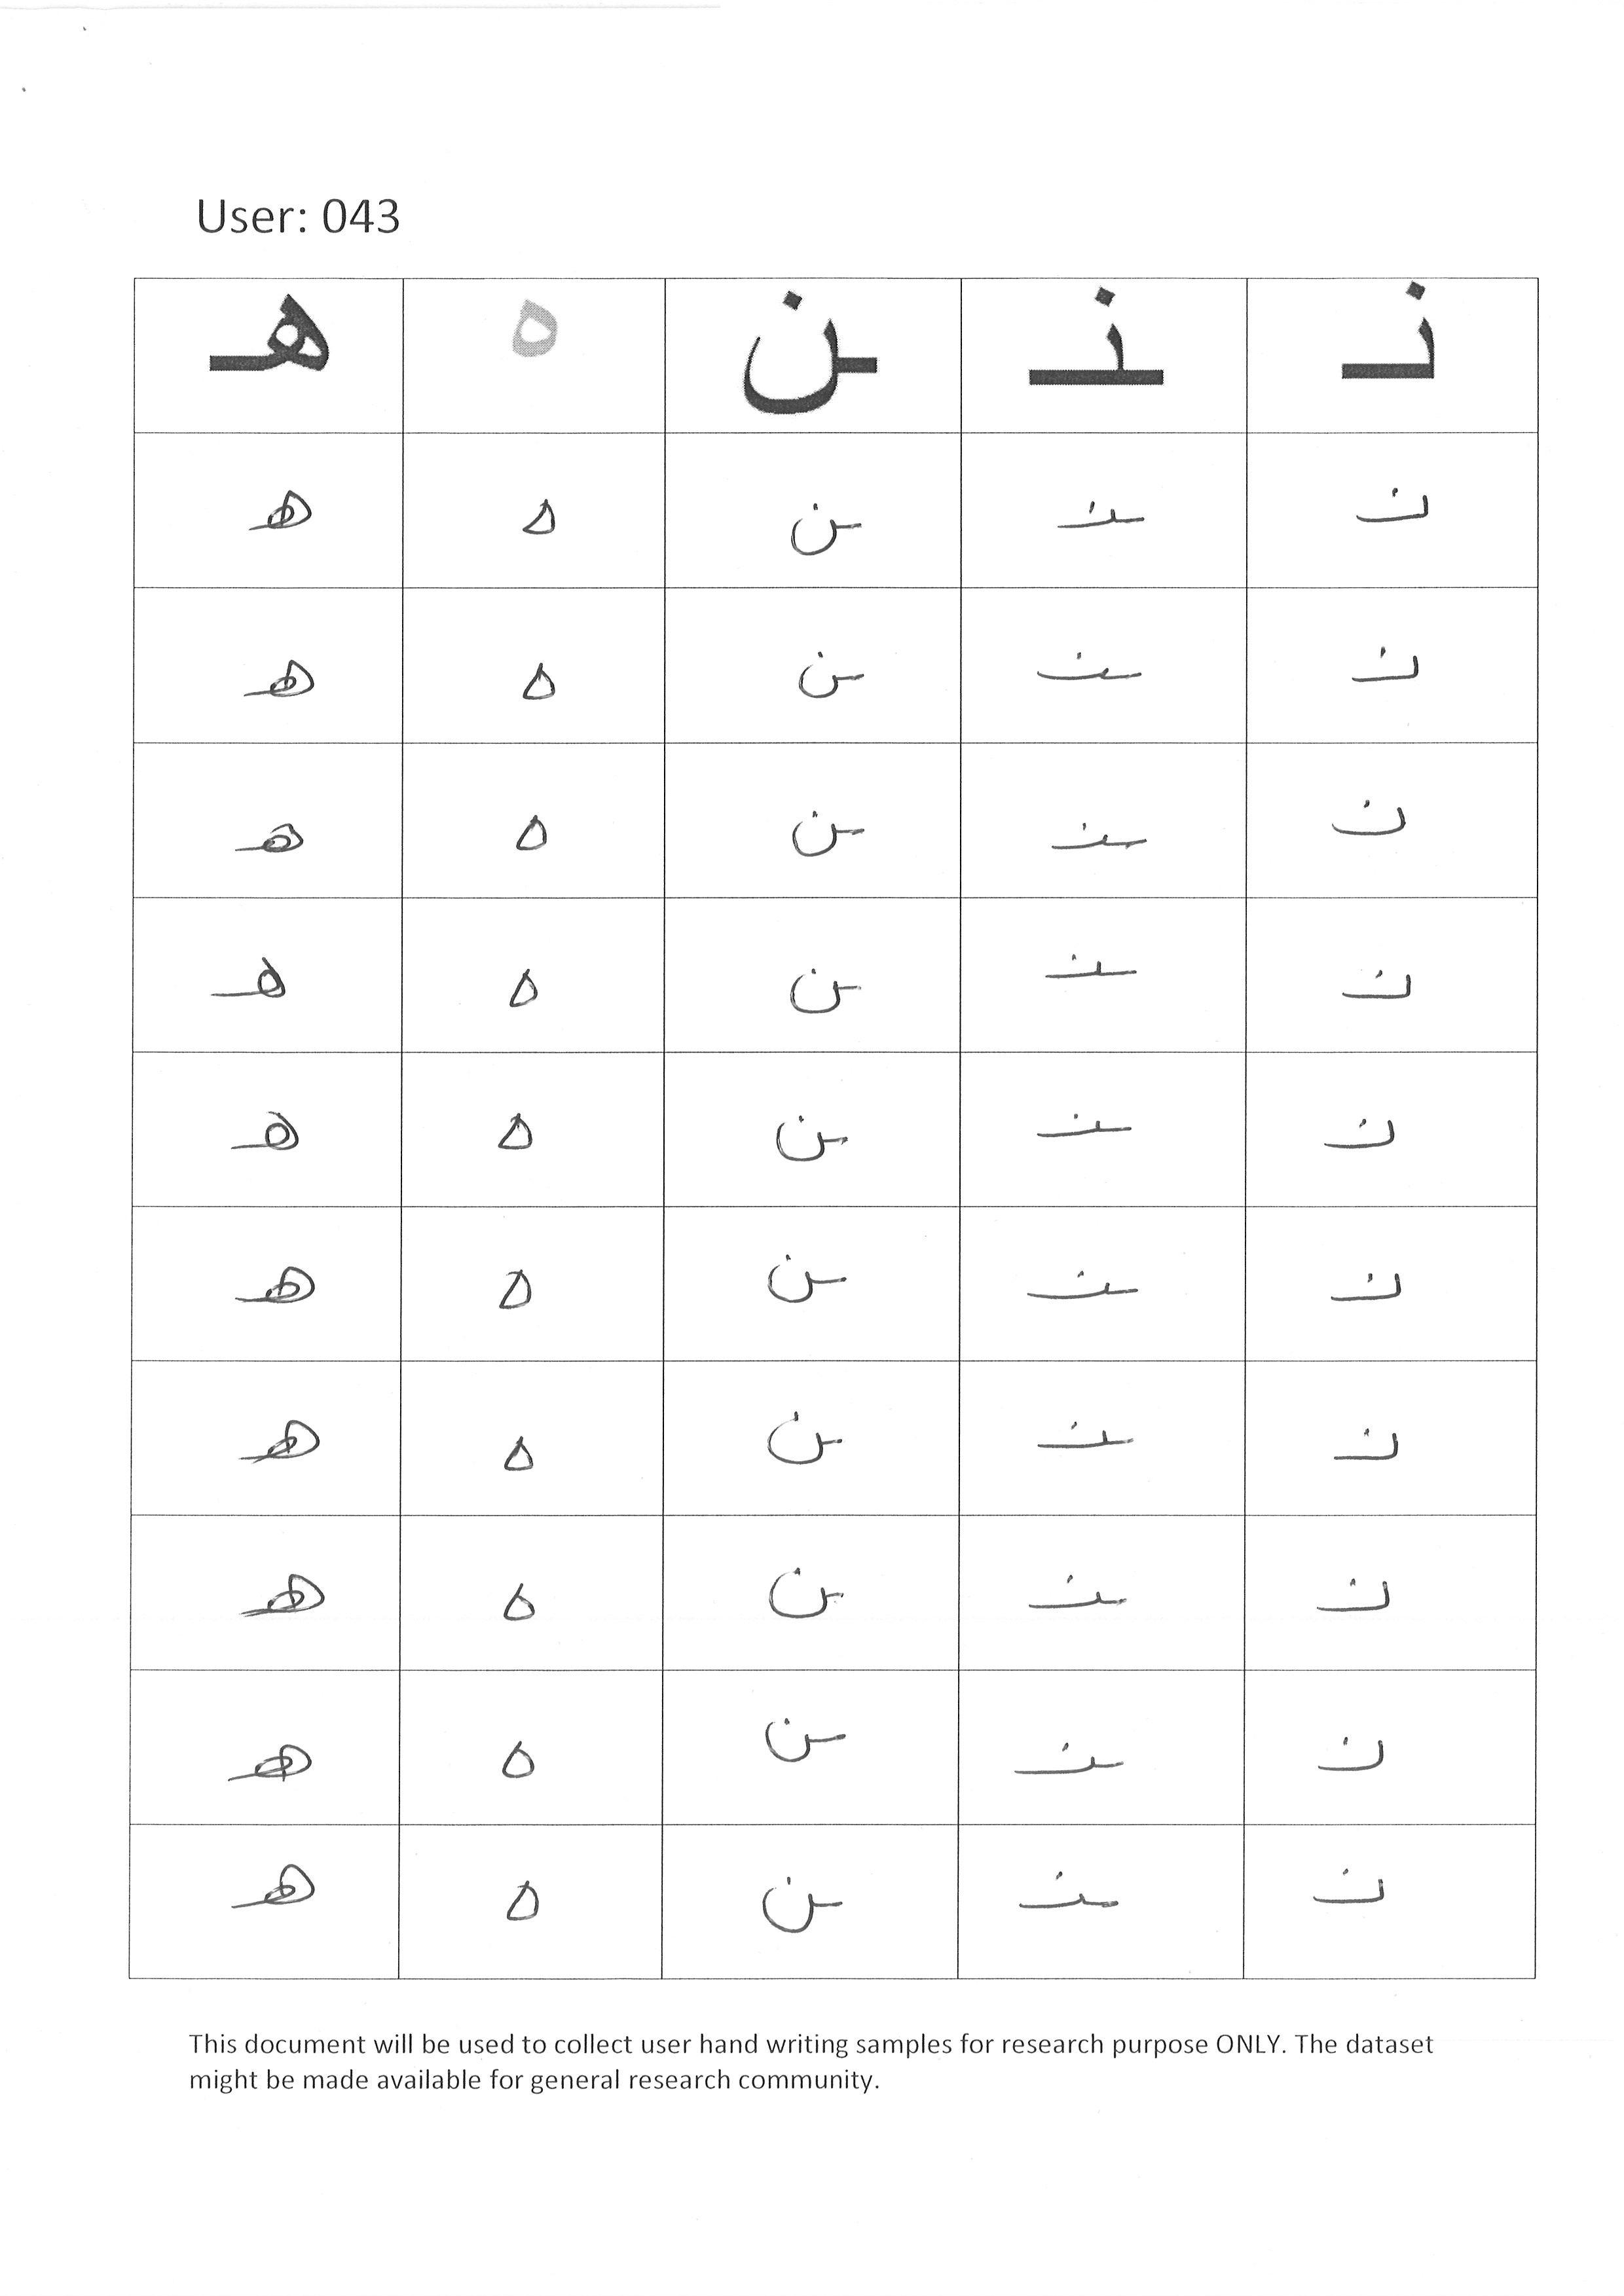 User: 043
نـ ـنـ ـن ه هـ
نـ ـنـ ـن ه هـ
نـ ـنـ ـن ه هـ
نـ ـنـ ـن ه هـ
نـ ـنـ ـن ه هـ
نـ ـنـ ـن ه هـ
نـ ـنـ ـن ه هـ
نـ ـنـ ـن ه هـ
نـ ـنـ ـن ه هـ
نـ ـنـ ـن ه هـ
نـ ـنـ ـن ه هـ
This document will be used to collect user hand writing samples for research purpose ONLY. The dataset
might be made available for general research community.